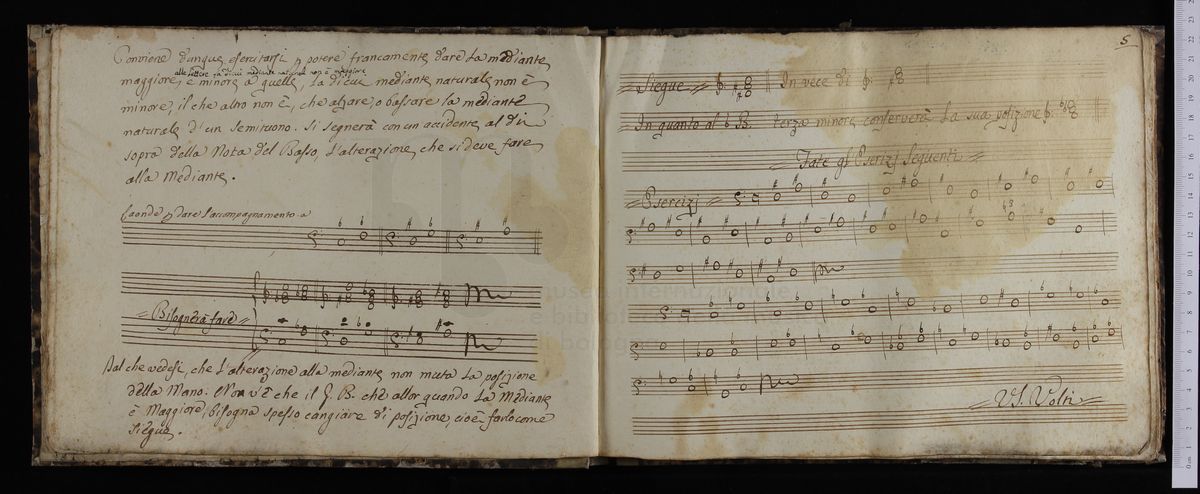 Conviene dunque esercitarsi p potere francamente dare la mediante
alle lettere la di cui mediante naturale non è maggiore
maggiore, e minore a quelle, la di cui mediante naturale non è
minore, il che altro non è, che alzare, o bassare la mediante
naturale d'un semituono. Si segnerà con un accidente al di
sopra della Nota del Basso, l'alterazione che si deve fare
alla Mediante.
Laonde p dare l'accompagnamento a
Bisognerà fare
Dal che vedesi, che l'alterazione alla mediante non muta la posizione
della Mano. Non v'è che il G. B. che allor quando la Mediante
è Maggiore, bisogna spesso cangiare di posizione, cioè farlo come
siegue.
5
Siegue
In vece di
In quanto al b B. terza minore conserverà la sua posizione
Fate gl' Esercizj Seguenti
Esercizj
V.S. Volti
museo internazionale
e biblioteca